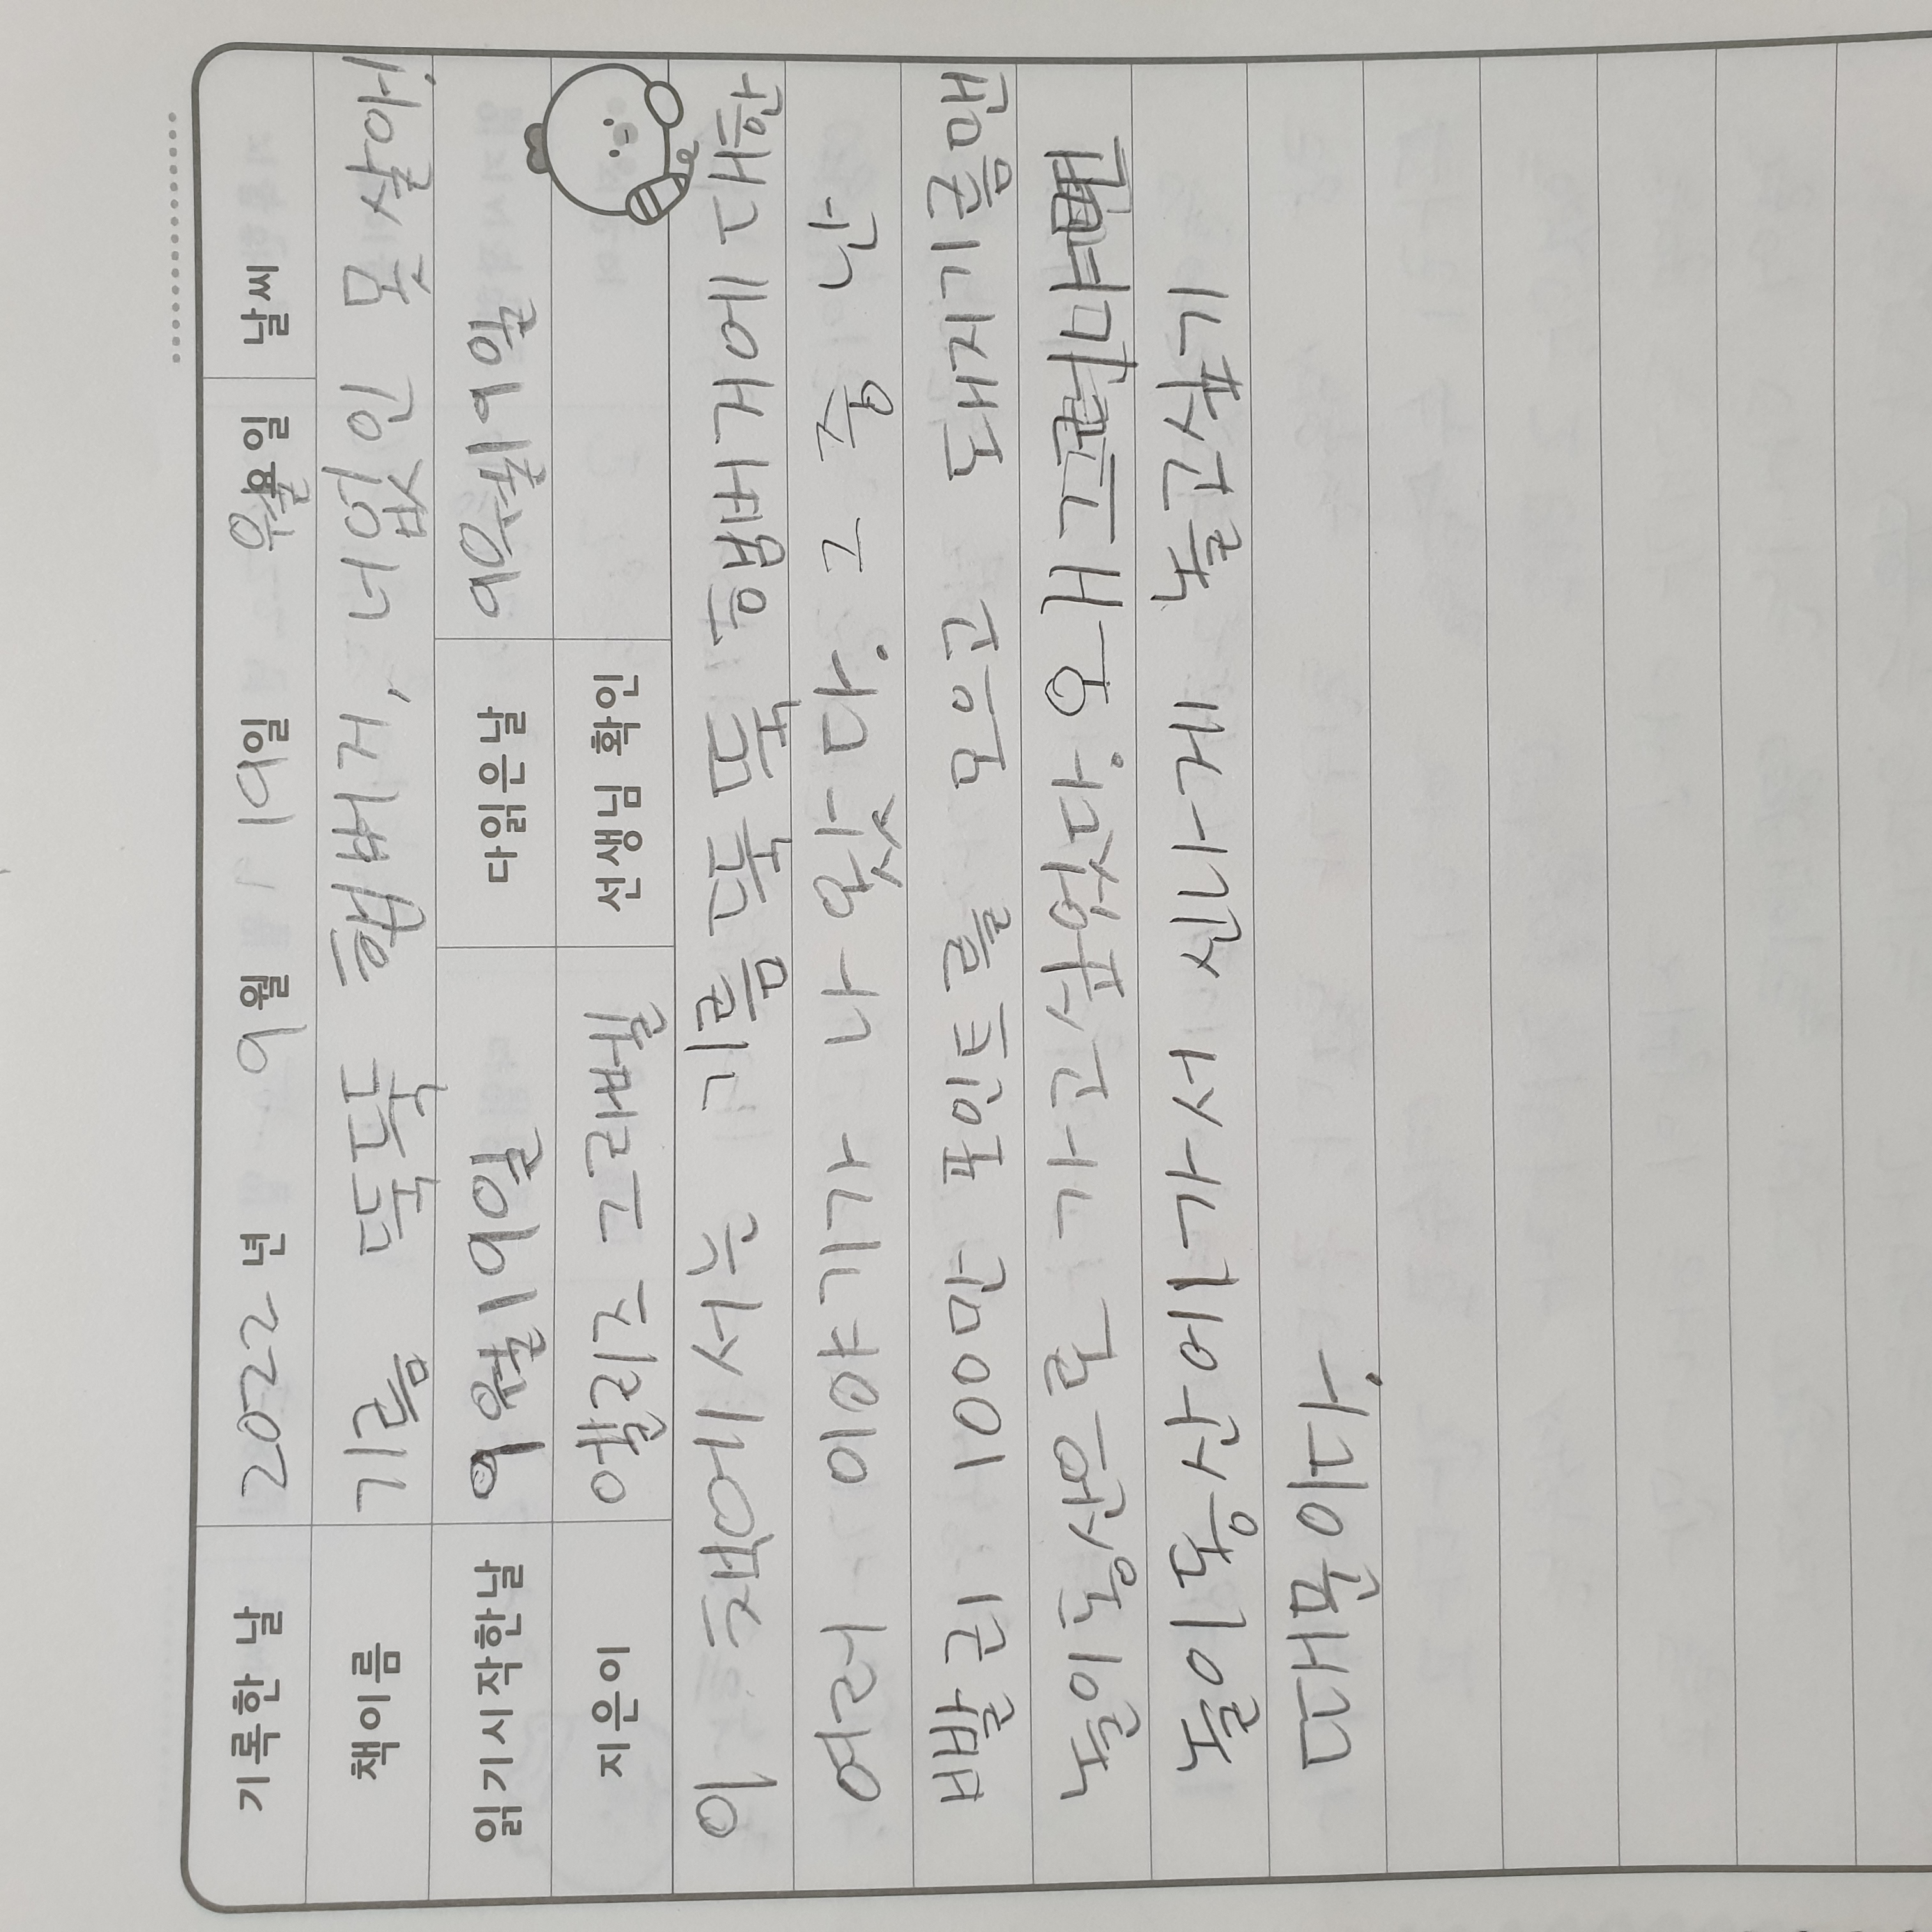 기록한 날 2022 년 9 월 19일 월요일 날씨
책이름 기름 뚝뚝 햄버거, 너없인 못살아!
읽기시작한날 9월19일 다읽은날 9월19일
지은이 엘리즈 그라벨 선생님 확인
이 책에서는 기름뚝뚝 햄버거에 대한
여러 이야기가 나왔다. 그 중 난
빨리 100만 포인트를 모으고 돼지기름맨
놀이동산으로 가고싶었다. 왜그러냐면
놀이동산에가서 신나게 놀고싶기
때문이다.